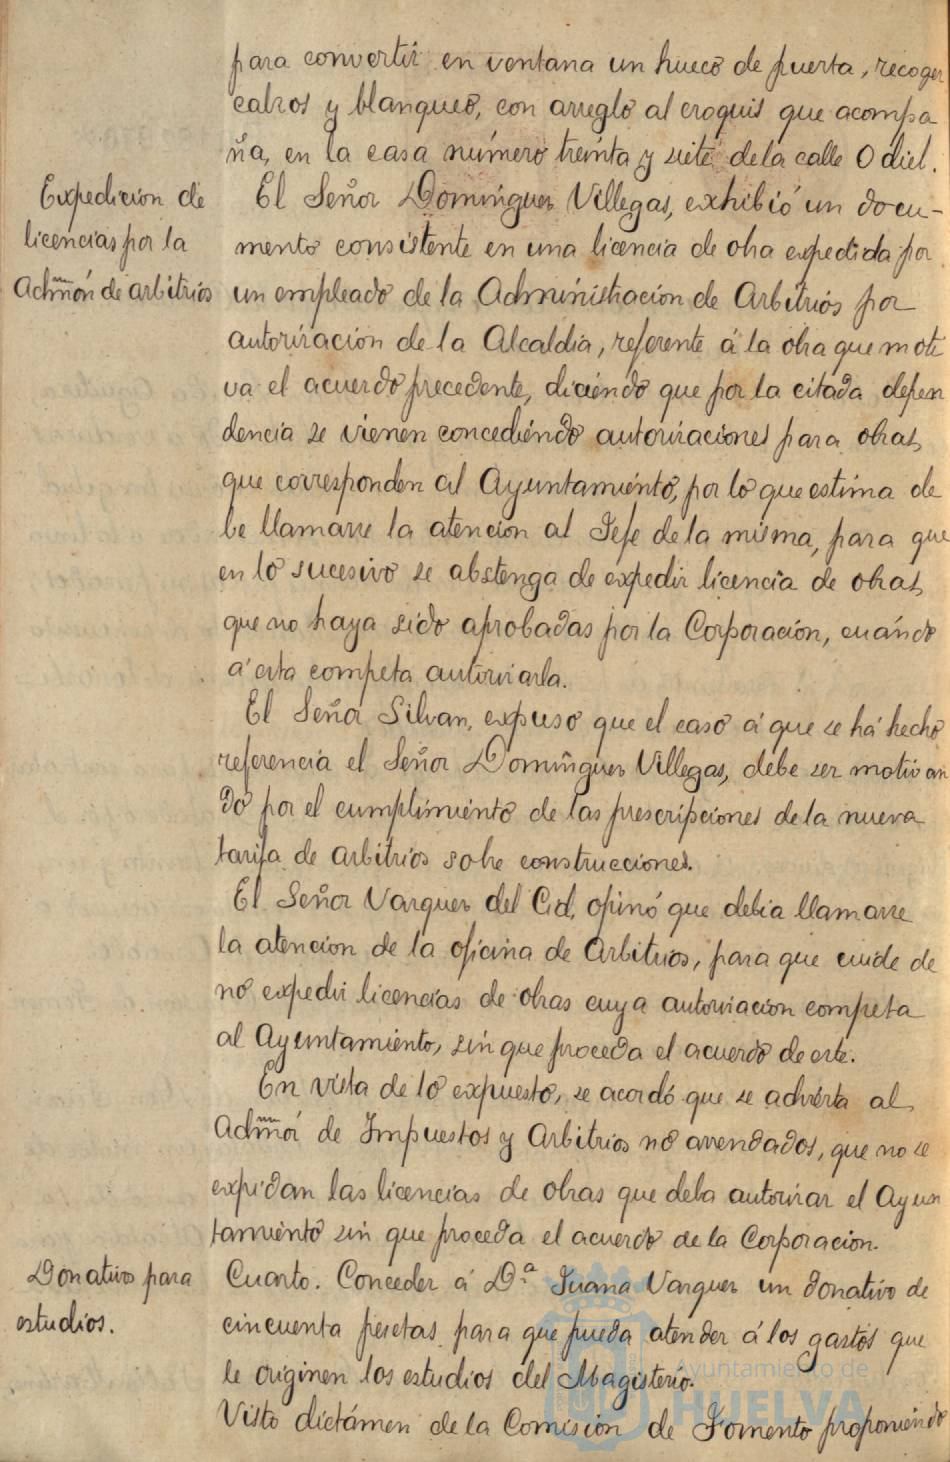 para convertir en ventana un hueco de puerta, recoger
calzos y blanqueo, con arreglo al croquis que acompa
ña, en la casa número treinta y siete de la calle Odiel.
Expedicion de
licencias por la
Admón de arbitrios
El Señor Dominguez Villegas, exhibió un docu-
mento consistente en una licencia de obra expedida por
un empleado de la Administracion de Arbitrios por
autorizacion de la Alcaldia, referente á la obra que moti
va el acuerdo precedente, diciendo que por la citada depen
dencia se vienen concediendo autorizaciones para obras,
que corresponden al Ayuntamiento, por lo que estima de
be llamarse la atencion al Jefe de la misma, para que
en lo sucesivo se abstenga de expedir licencia de obras,
que no haya sido aprobadas por la Corporación, cuando
á esta competa autorizarla.
El Señor Silvan, expuso que el caso á que se há hecho
referencia el Señor Dominguez Villegas, debe ser motivan
do por el cumplimiento de las prescripciones de la nueva
tarifa de arbitrios sobre construcciones.
El Señor Vazquez del Cid, opinó que debia llamarse
la atencion de la oficina de Arbitrios, para que cuide de
no expedir licencias de obras cuya autorizacion competa
al Ayuntamiento, sin que proceda el acuerdo de este.
En vista de lo expuesto, se acordó que se advierta al
Admór de Impuestos y Arbitrios no arrendados, que no se
expidan las licencias de obras que deba autorizar el Ayun
tamiento sin que proceda el acuerdo de la Corporacion.
Donativo para
estudios.
Cuarto. Conceder á D.ª Juana Vazquez un donativo de
cincuenta pesetas para que pueda atender á los gastos que
le originen los estudios del Magisterio.
Visto dictámen de la Comision de Fomento proponiendo
Ayuntamiento de
HUELVA